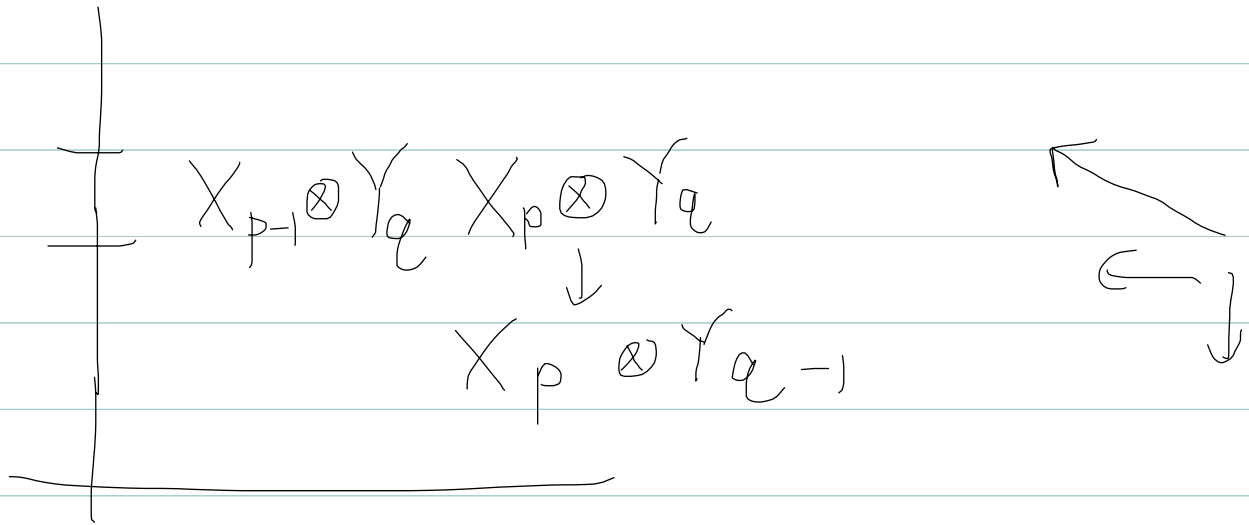 X_{p-1} ⊗ Y_q X_p ⊗ Y_q
↓
X_p ⊗ Y_{q-1}